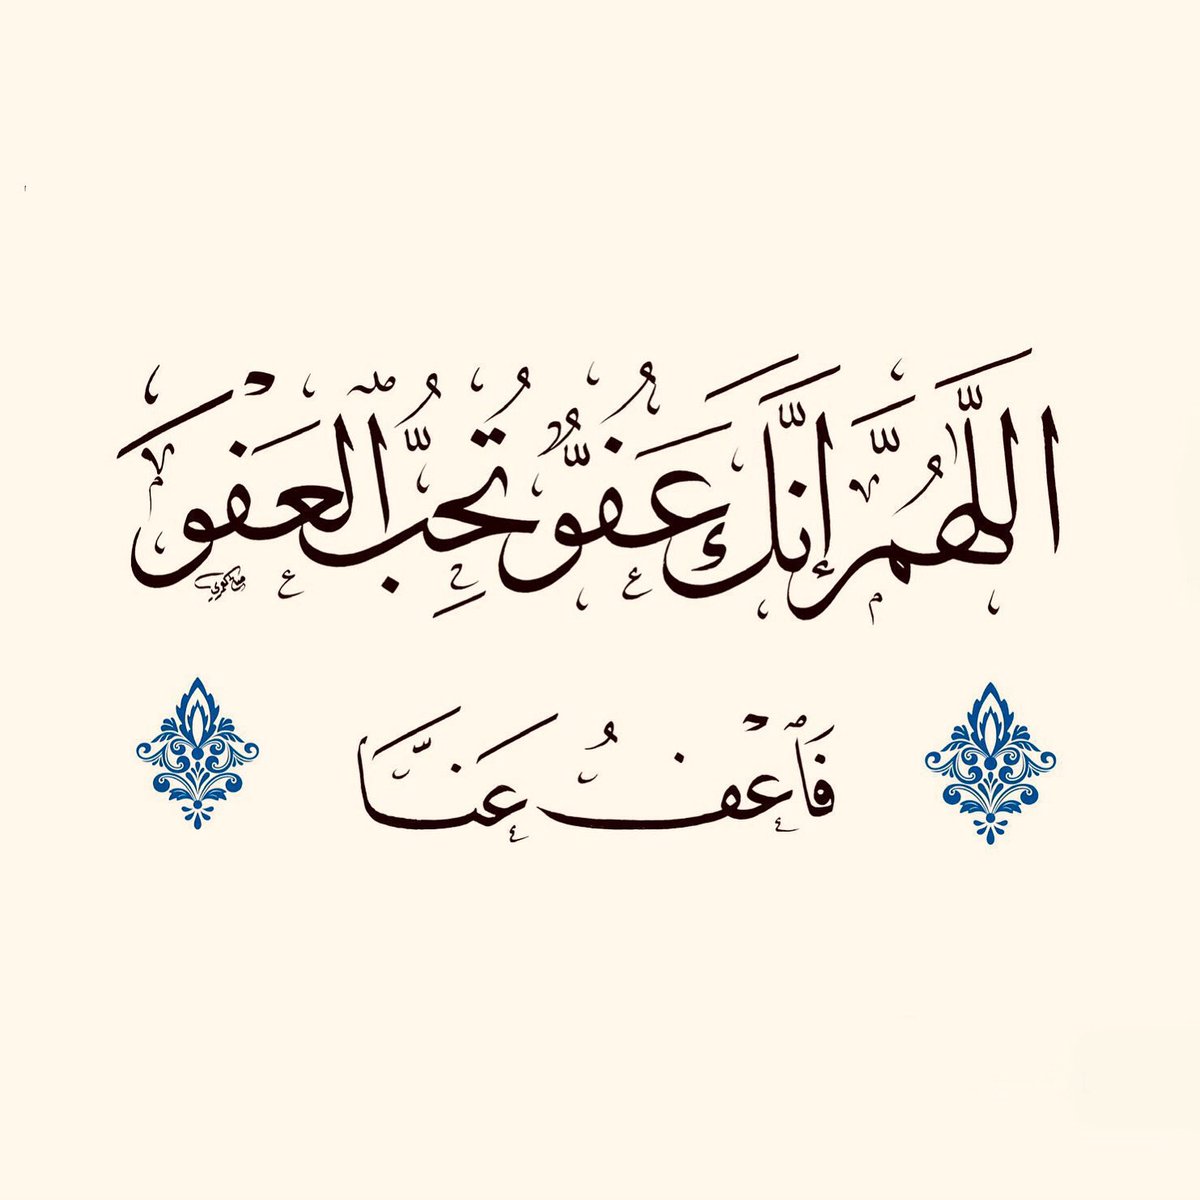 اللَّهُمَّ إِنَّكَ عَفُوٌّ تُحِبُّ الْعَفْوَ
فَٱعْفُ عَنَّا